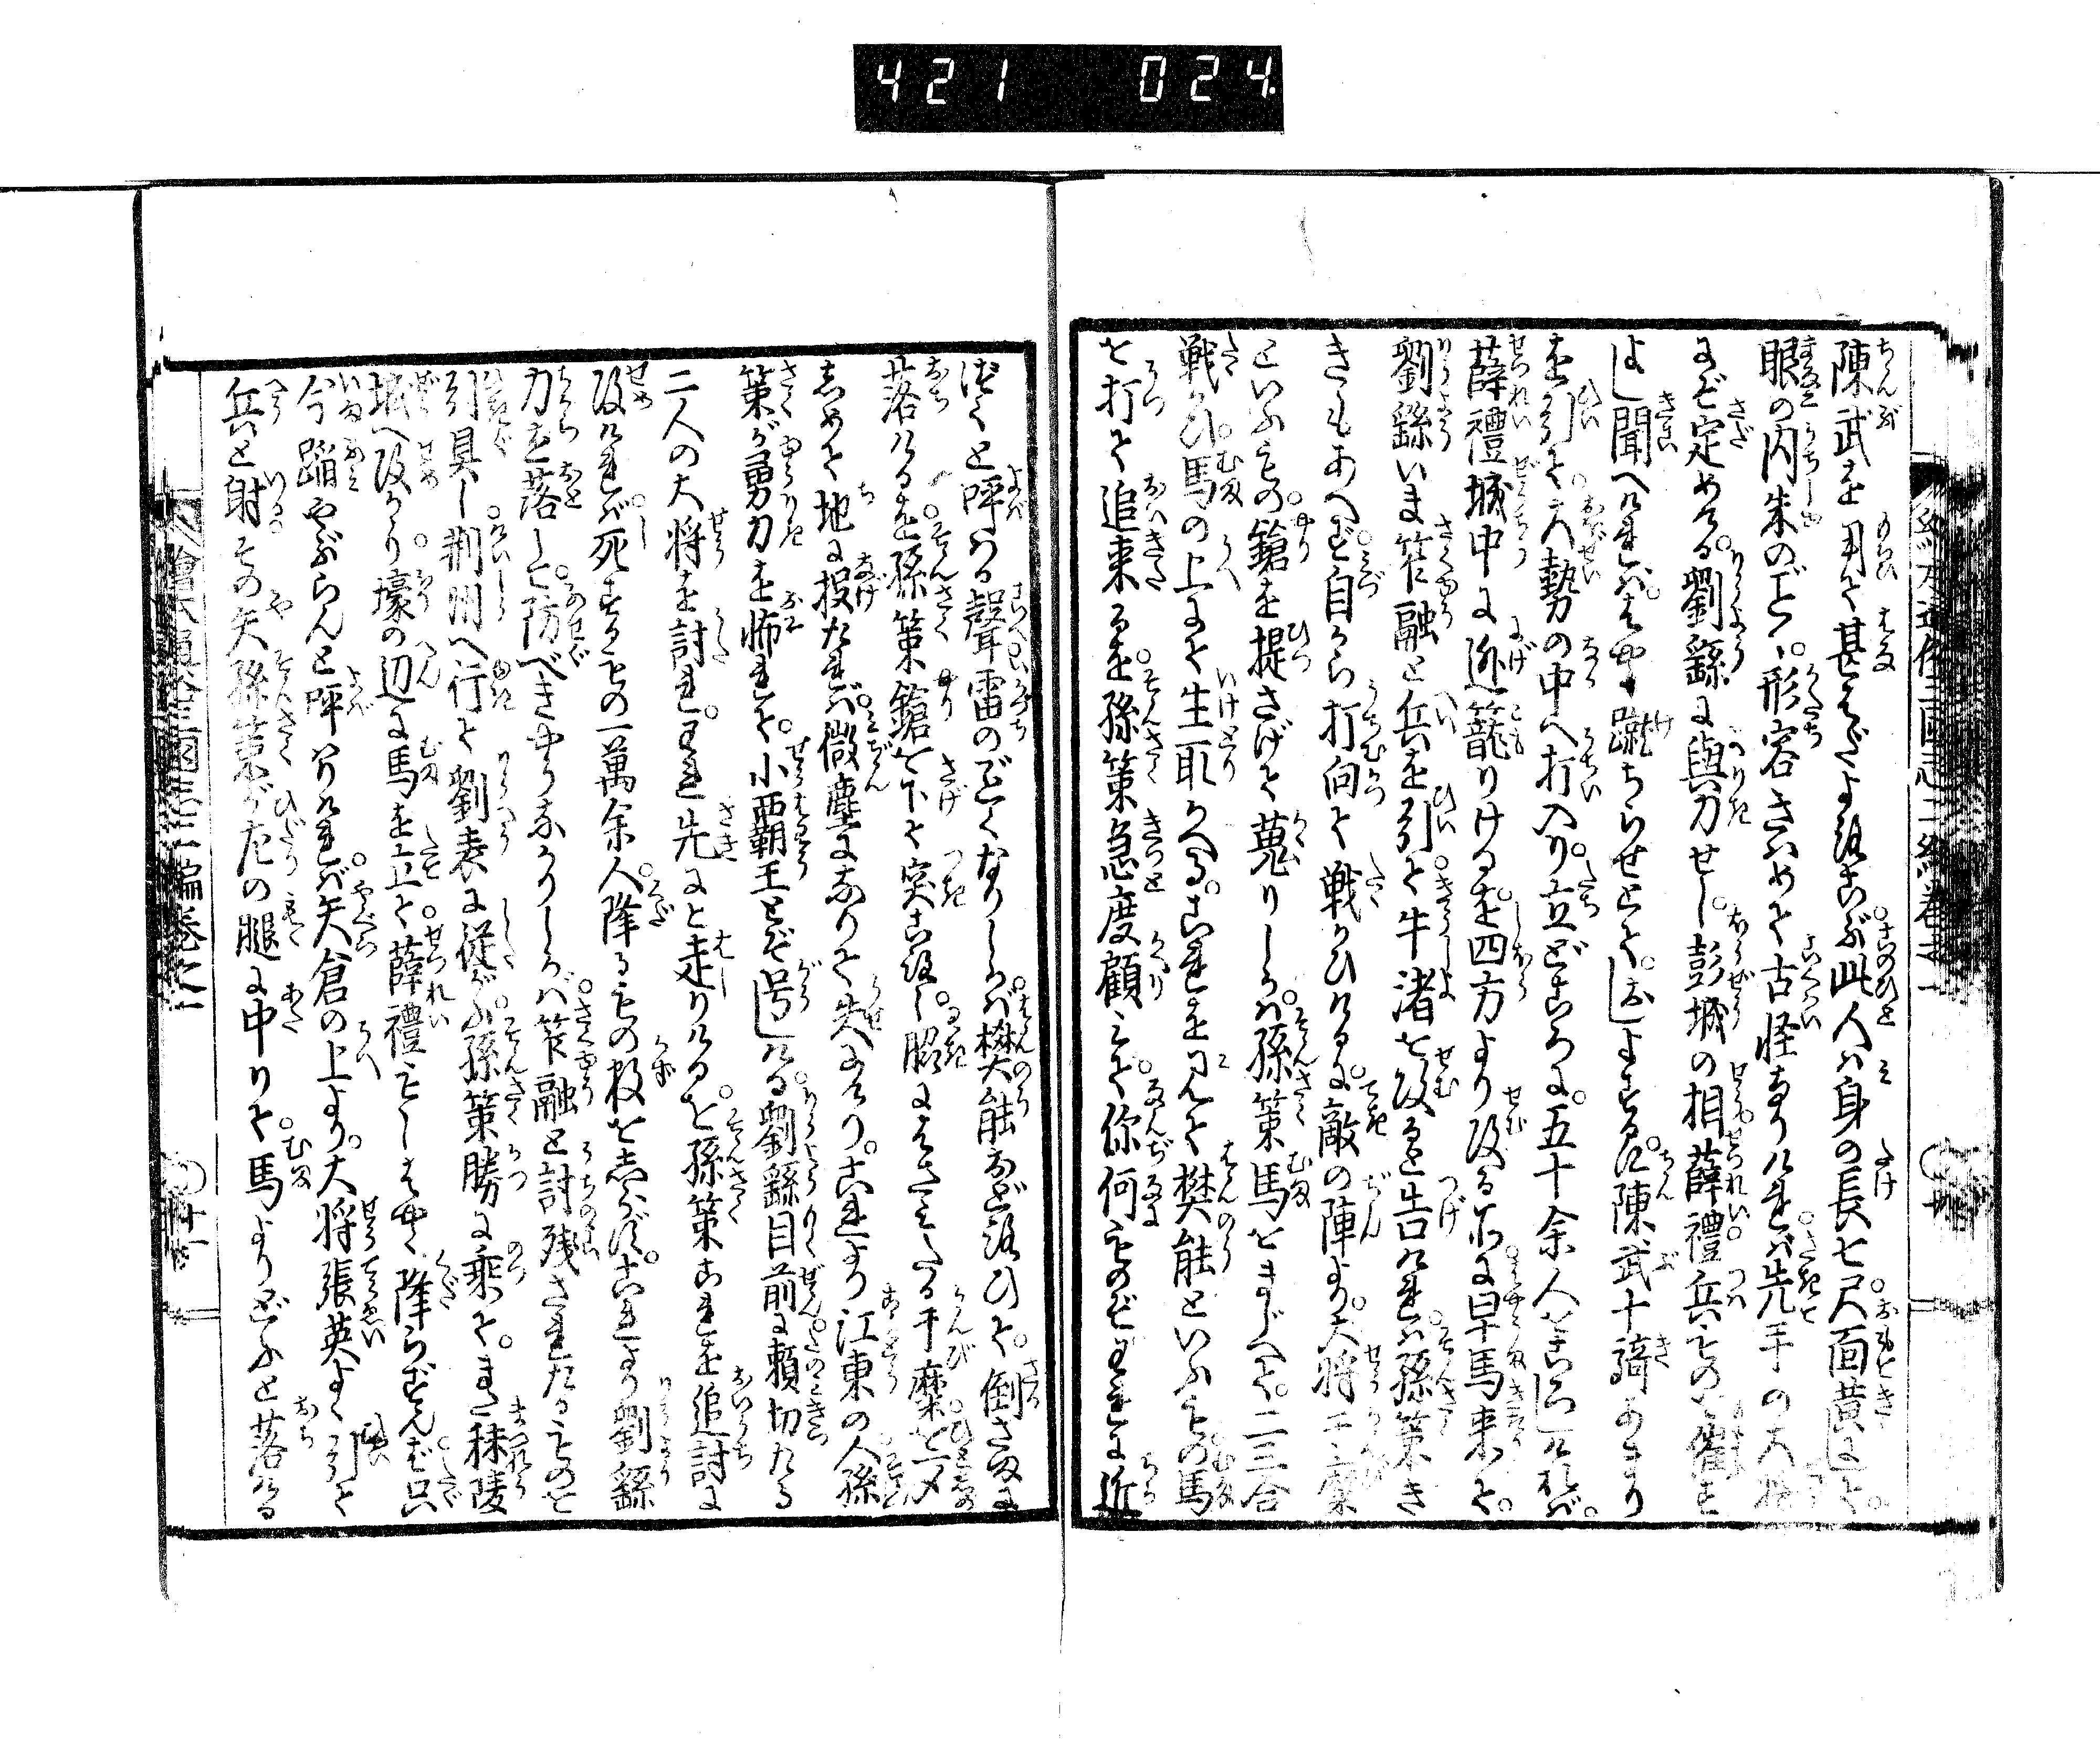 421 024
陳武を用て甚だよろこぶ此人ハ身の長七尺面黄にして
眼の内朱のごとく形容きはめて古怪なりければ先手の大将
にぞ定めける劉繇に與力せし彭城の相薛禮兵ものを催す
よし聞へければはや蹴ちらせとて下知しよするに陳武十騎あまり
を引て大勢の中へ打入り立どころに五十余人をきつしければ
薛禮城中に迯籠りけるを四方より攻る所に早馬来て
劉繇いま笮融と兵を引て牛渚を攻ると告ければ孫策き
きもあへず自から打向て戦ひける敵の陣より大将于糜
といふもの鎗を提さげて蒐りしが孫策馬をまじへて二三合
戦ひ馬の上にて生取かへるこれを見て樊能といふもの馬
を打て追来るを孫策急度顧ミて你何ものぞわれに近
づくと呼はる聲雷のごとくなりしかば樊能おどろひて倒さまに
落けるを孫策鎗を下て突ころし脇にはさミたる于糜を〆
しめて地に投たれば微塵になりて失にけりこれより江東の人孫
策が勇力を怖れて小覇王とぞ号しける劉繇目前に頼切たる
二人の大将を討れわれ先にと走りけるを孫策これを追討に
攻ければ死するもの一萬余人降るもの数をしらずこれより劉繇
力を落して防べきやうなかりしかば笮融と討残されたるものを
引具し荆州へ行て劉表に従がふ孫策勝に乗てまた秣陵
城へ攻かゝり壕の辺に馬を立て薛禮もしはやく降らずんば只
今蹈やぶらんと呼はりければ矢倉の上より大将張英よく引て
兵と射その矢孫策が左の腿に中りて馬よりどふと落ける
繪本通俗三國志二編巻之一
繪本通俗三國志二編巻之一
十一